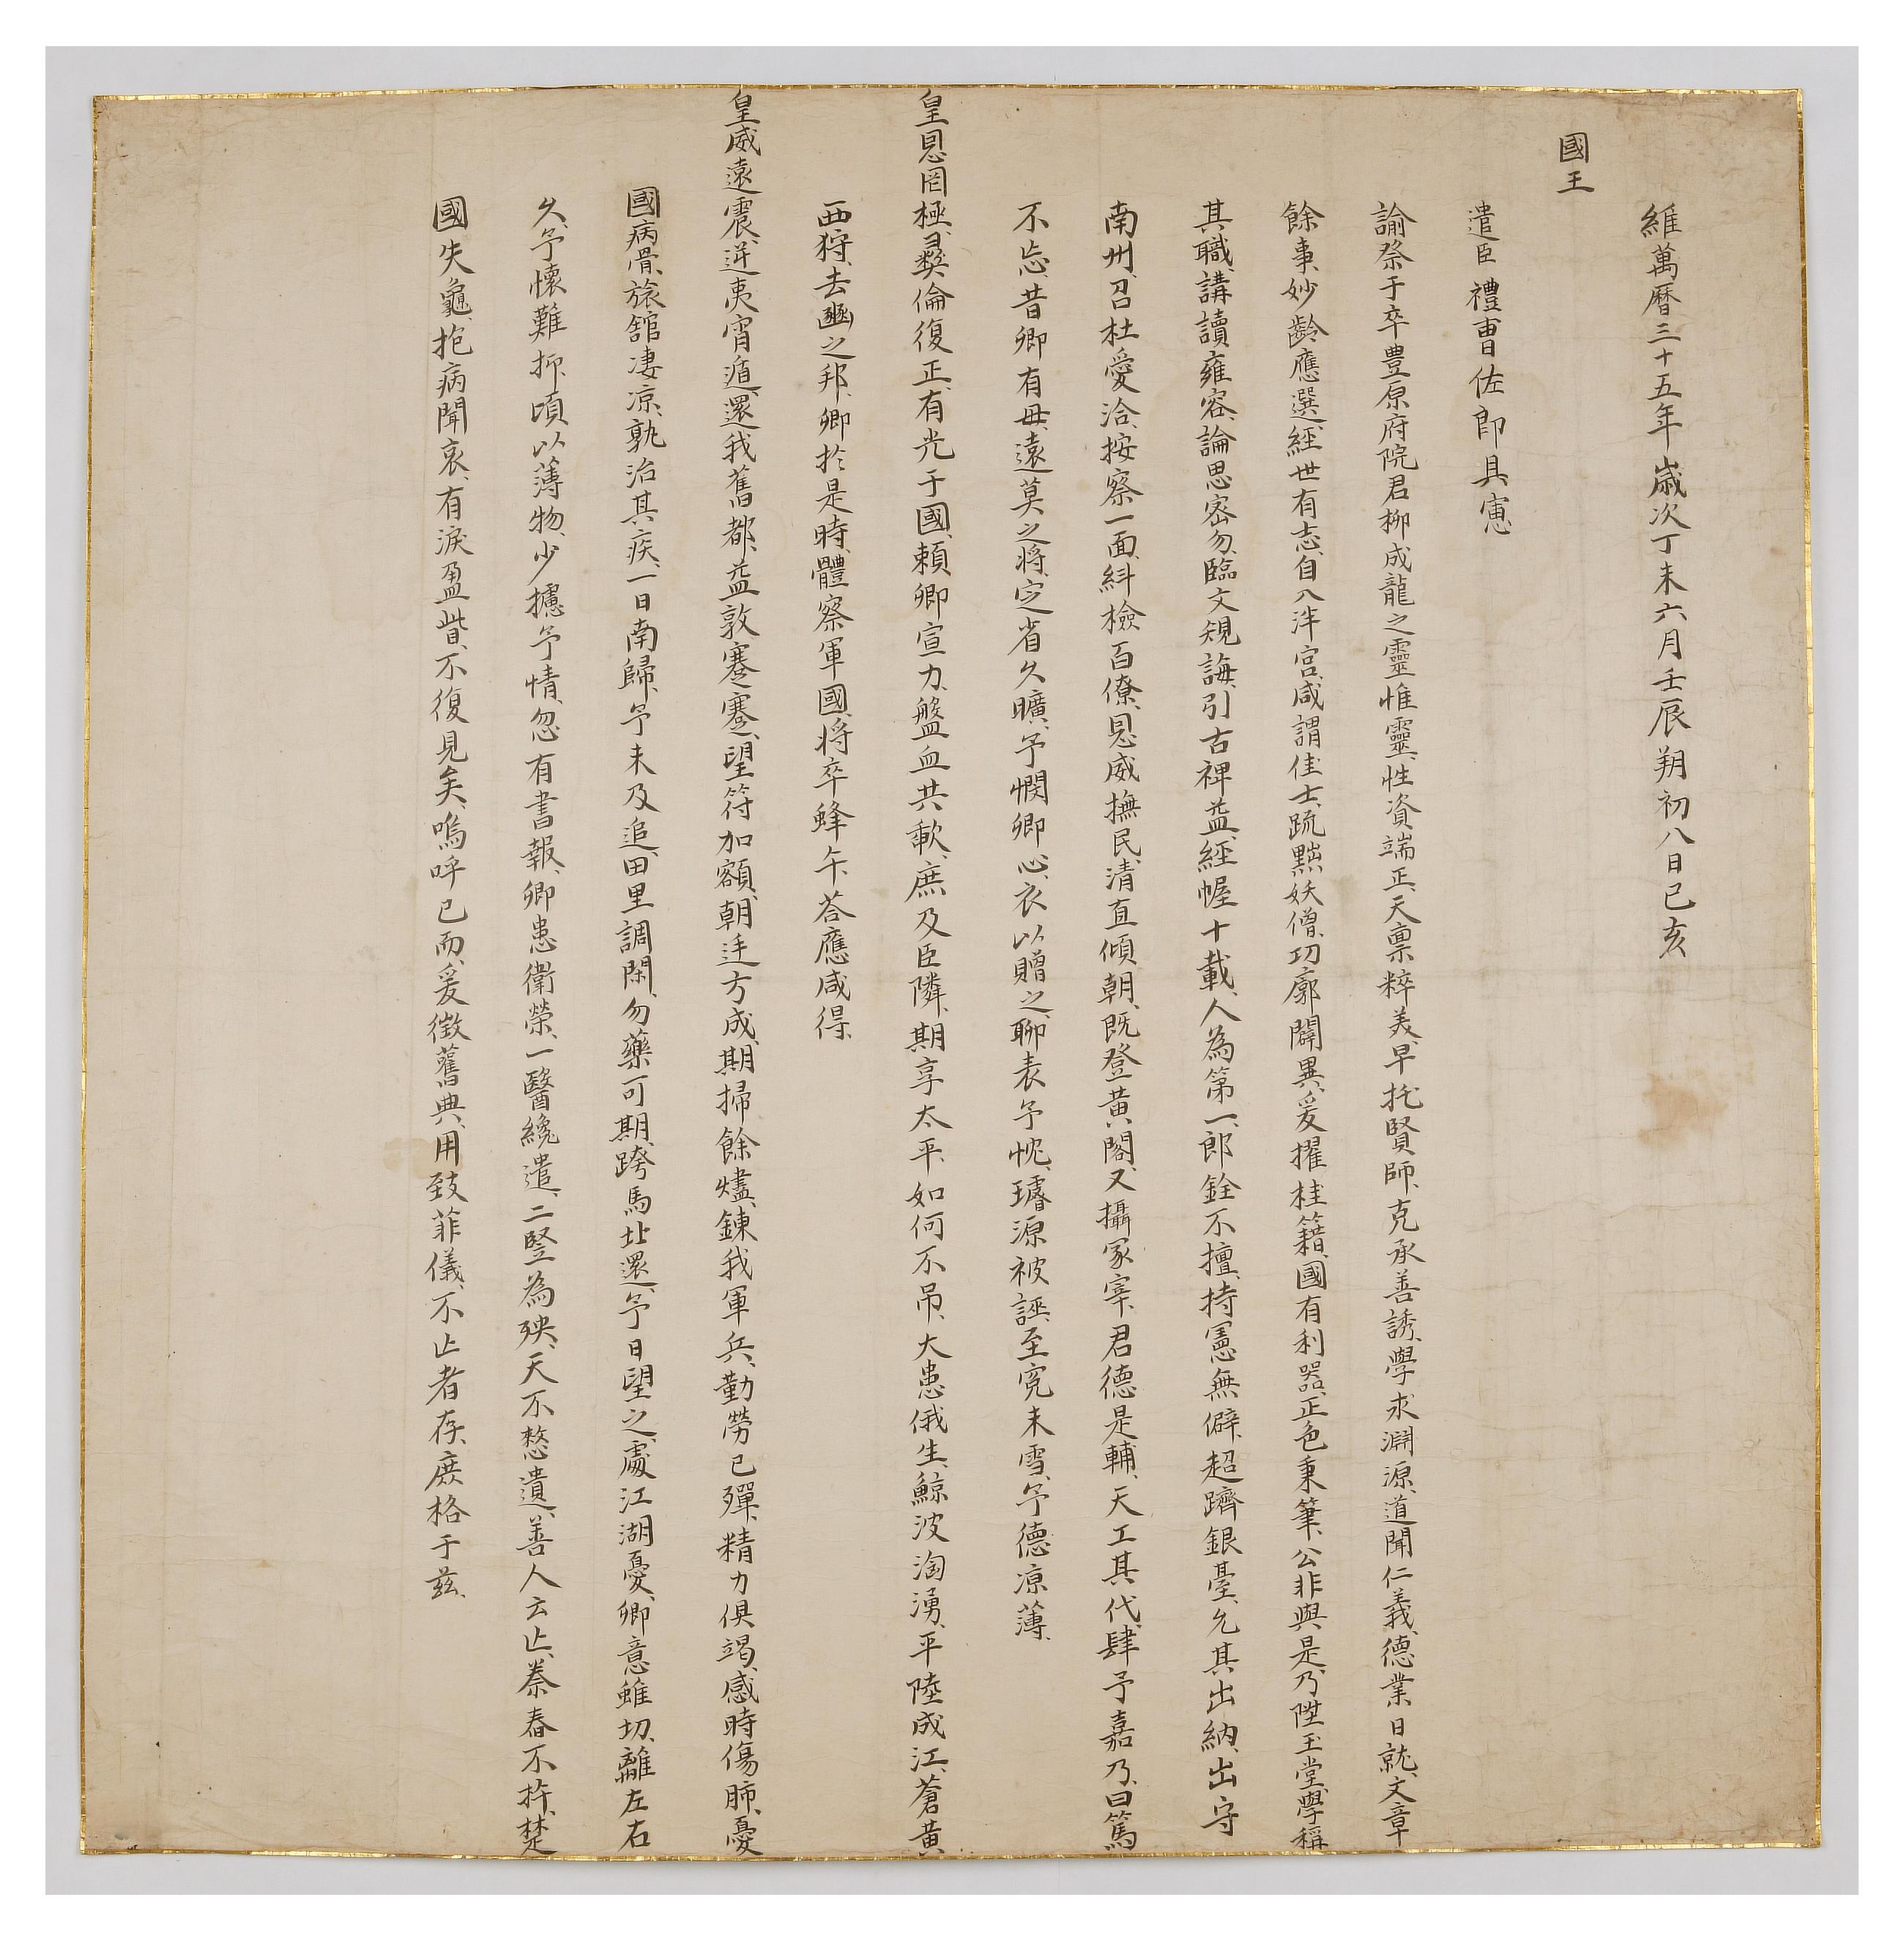 維萬曆三十五年歲次丁未六月壬辰朔初八日己亥
國王
遣臣禮曹佐郎具寭
諭祭于卒豊原府院君柳成龍之靈惟靈性資端正天稟粹美早托賢師克承善誘學求淵源道聞仁義德業日就文章
餘事妙齡應選經世有志自入泮宮咸謂佳士疏黜妖僧功廓闢異爰擢桂籍國有利器正色秉筆公非與是乃陞玉堂學稱
其職講讀雍容論思密勿臨文規誨引古裨益經幄十載人為第一郎銓不擅持憲無僻超躋銀臺允其出納出守
南州召杜愛洽按察一面糾檢百僚恩威撫民清直傾朝既登黃閣又攝冢宰君德是輔天工其代肆予嘉乃曰篤
不忘昔卿有母遠莫之將定省久曠予憫卿心衣以贈之聊表予忱璿源被誣至寃未雪予德凉薄
皇恩罔極彛倫復正有光于國賴卿宣力盤血共歃庶及臣隣期享太平如何不吊大患俄生鯨波淘湧平陸成江蒼黃
西狩去豳之邦卿於是時體察軍國將卒蜂午荅應咸得
皇威遠震逆夷宵遁還我舊都益敦蹇蹇望符加額朝廷方成期掃餘燼鍊我軍兵勤勞已殫精力俱竭感時傷肺憂
國病骨旅舘凄凉孰治其疾一日南歸予未及追田里調閑勿藥可期跨馬北還予日望之處江湖憂卿意雖切離左右
久予懷難抑頃以薄物少攄予情忽有書報卿患衛榮一醫纔遣二竪為殃天不憗遺善人云亡秦舂不杵楚
國失龜抱病聞哀有淚盈眥不復見矣嗚呼已而爰徵舊典用致菲儀不亡者存庶格于兹